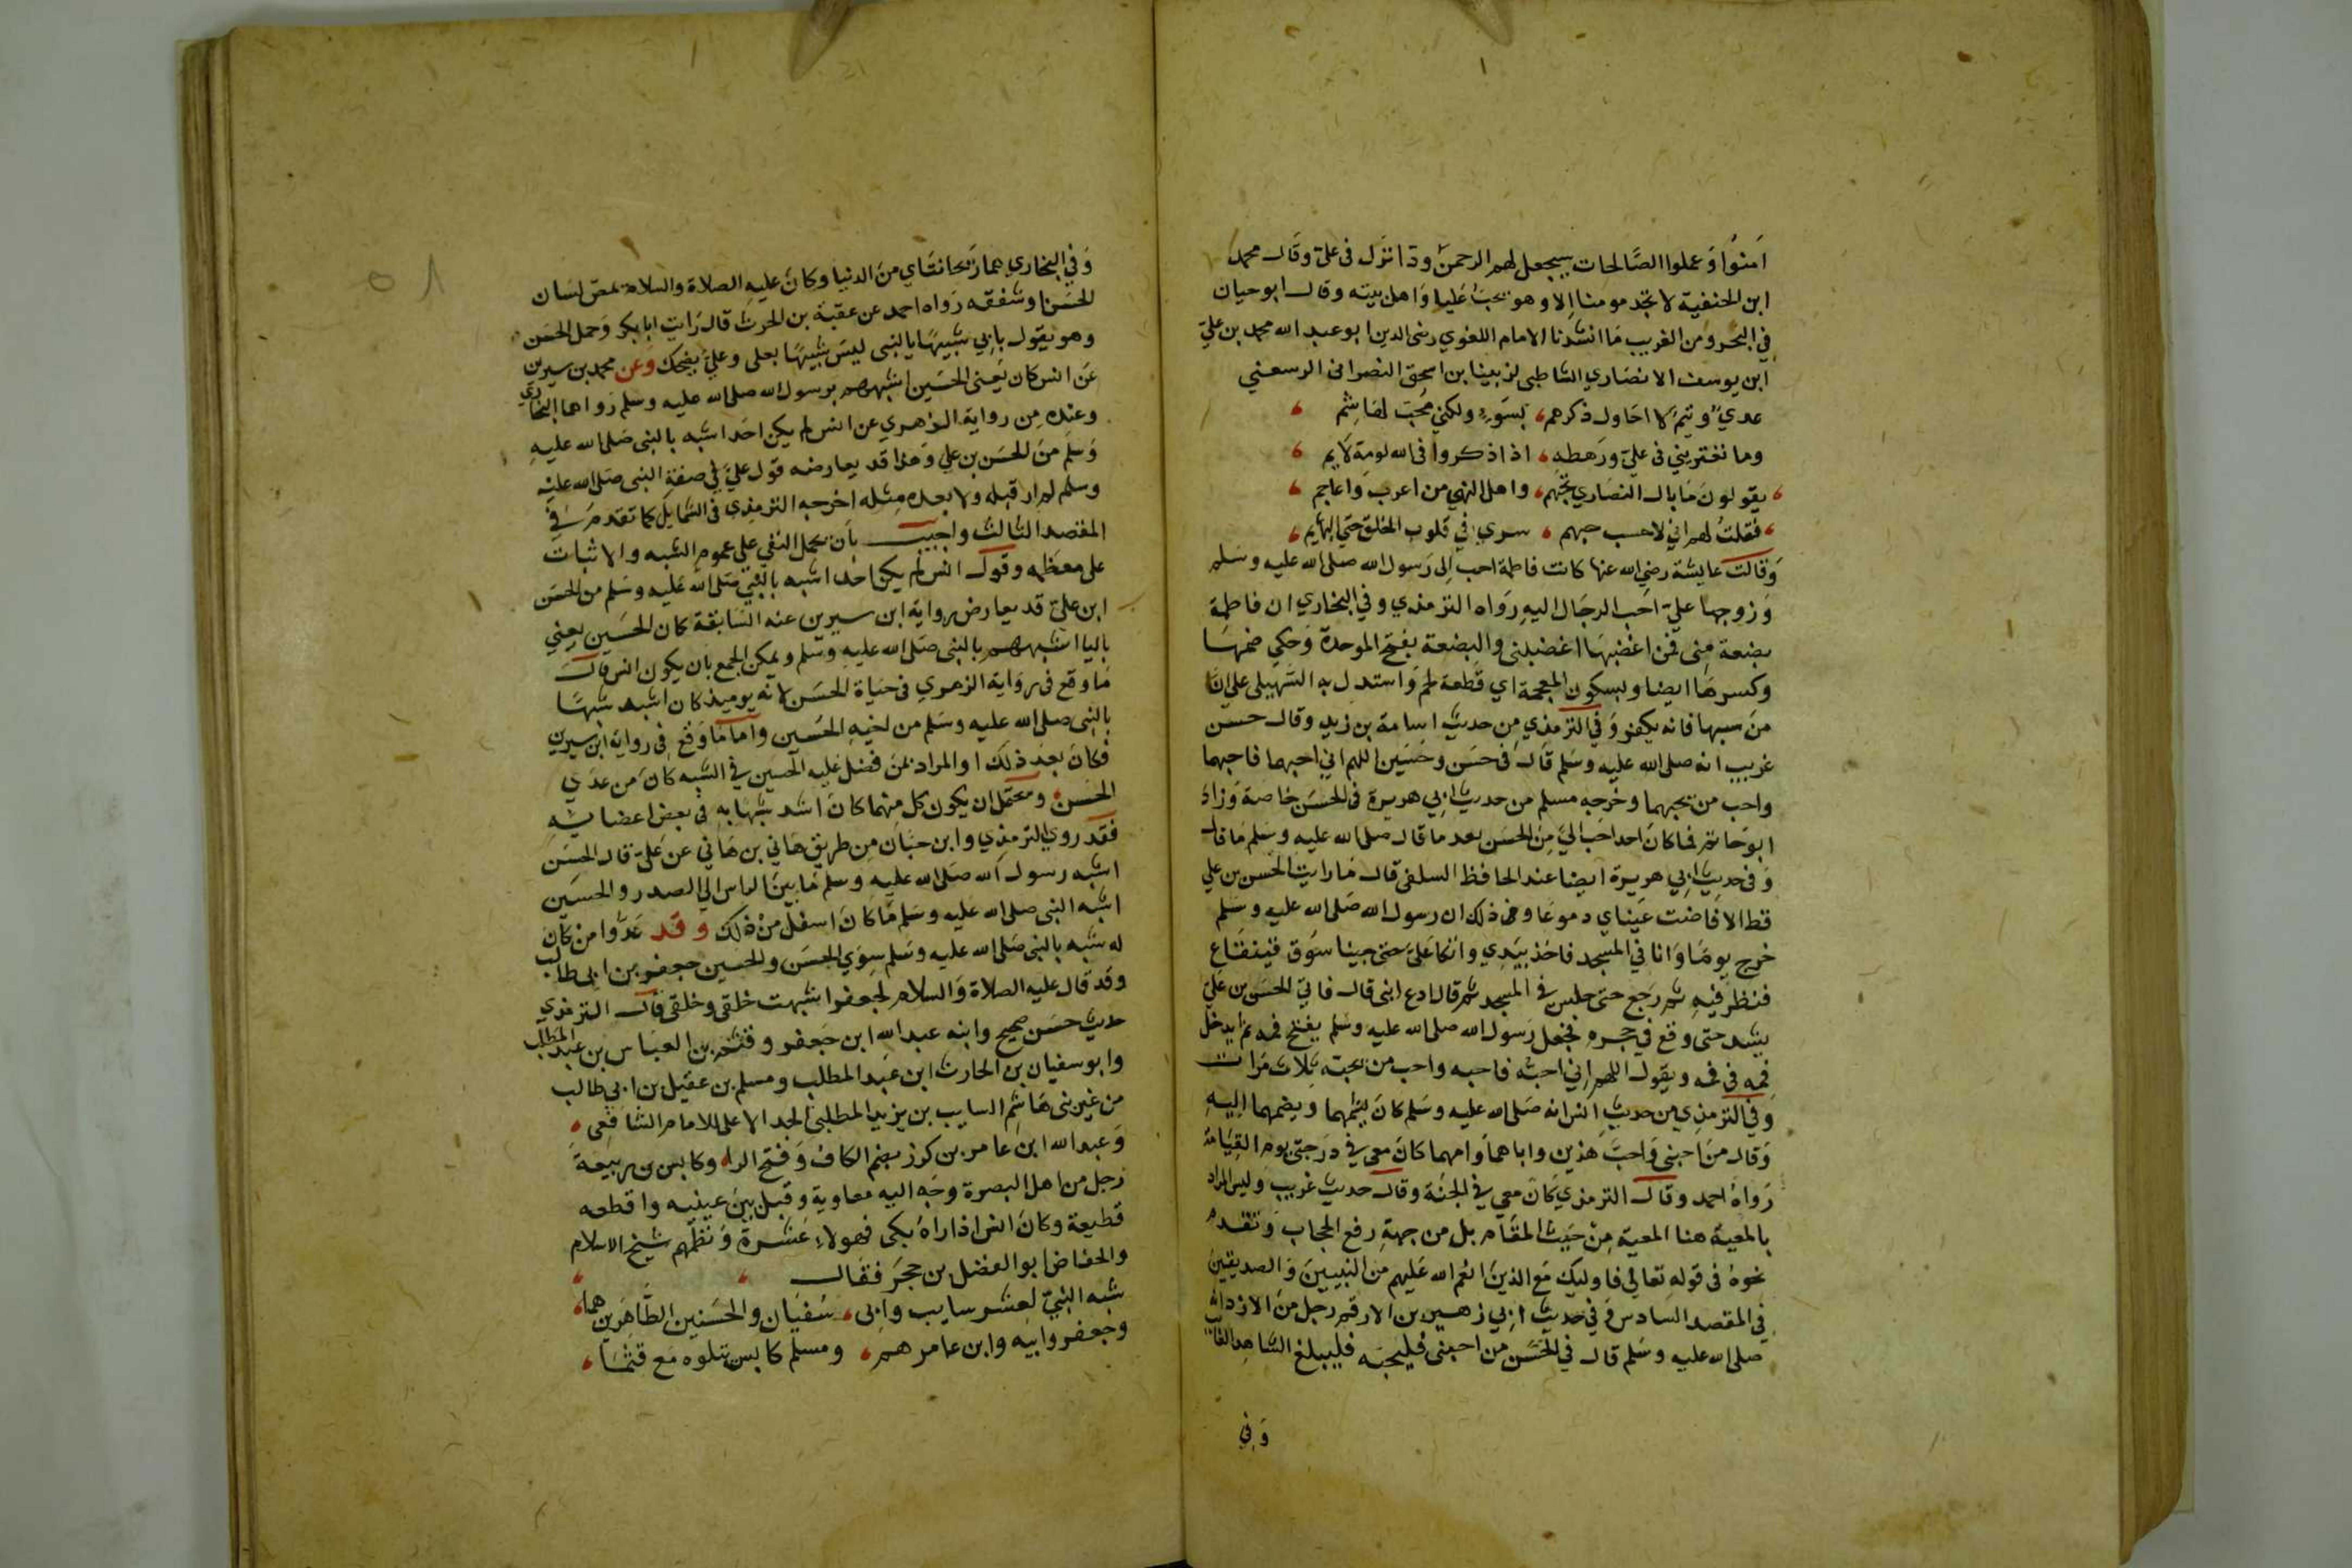 امنوا وعملوا الصالحات سيجعل لهم الرحمن ودا نزل في علي وقال محمد
ابن الحنفية لا تجد مومنا الا وهو يحب عليا واهل بيته وقال ابو حيان
في البحر ومن الغريب ما انشدنا الامام اللغوي رضى الدين ابو عبد الله محمد بن علي
ابن يوسف الانصاري الشاطبى لزبينا بن اسحق النصرانى الرسعني
عدي وتيم لا احاول ذكرهم ، بسوء ولكني محب لهاشم ،
وما تغتريني في علي ورهطه ، اذا ذكروا في الله لومة لايم ،
، يقولون ما بال النصاري تحبهم ، واهل النهي من اعرب واعاجم ،
، فقلت لهم اني لاحسب حبهم ، سري في قلوب الخلق حتي البهايم ،
وقالت عايشة رضي الله عنها كانت فاطمة احب الى رسول الله صلى الله عليه وسلم
وزوجها علي احب الرجال اليه رواه الترمذي وفي البخاري ان فاطمة
بضعة مني فمن اغضبها اغضبني والبضعة بفتح الموحدة وحكي ضمها
وكسرها ايضا وبسكون المعجمة اي قطعة لحم واستدل به السهيلى على ان
من سبها فانه يكفر وفي الترمذي من حديث اسامة بن زيد وقال حسن
غريب انه صلى الله عليه وسلم قال في حسن وحسين اللهم اني احبهما فاحبهما
واحب من يحبهما وخرجه مسلم من حديث ابي هريرة في الحسن خاصة وزاد
ابو حاتم فما كان احد احب الي من الحسن بعد ما قال صلى الله عليه وسلم ما قال
وفي حديث ابي هريرة ايضا عند الحافظ السلفى قال ما رايت الحسن بن علي
قط الا فاضت عيناي دموعا وذلك ان رسول الله صلى الله عليه وسلم
خرج يوما وانا في المسجد فاخذ بيدي واتكا علي حتى جينا سوق قينقاع
فنظر فيه ثم رجع حتى جلس في المسجد ثم قال ادع ابنى قال فاتى الحسن بن علي
يشتد حتى وقع في حجره فجعل رسول الله صلى الله عليه وسلم يفتح فمه ثم يدخل
فمه في فمه ويقول اللهم اني احبه فاحبه واحب من يحبه ثلاث مرات
وفي الترمذي من حديث انس انه صلى الله عليه وسلم كان يشمهما ويضمهما اليه
وقال من احبني واحب هذين واباهما وامهما كان معي في درجتي يوم القيامة
رواه احمد وقال الترمذي كان معي في الجنة وقال حديث غريب وليس المراد
بالمعية هنا المعية من حيث المقام بل من جهة رفع الحجاب وتقدم
نحوه في قوله تعالى فاوليك مع الذين انعم الله عليهم من النبيين والصديقين
في المقصد السادس وفي حديث ابي زهير بن الارقم رجل من الازد انه
صلى الله عليه وسلم قال في الحسن من احبني فليحبه فليبلغ الشاهد الغائب
وفي
وفي البخاري هما ريحانتاي من الدنيا وكان عليه الصلاة والسلام يمص لسان
الحسن او شفته رواه احمد عن عقبة بن الحرث قال رايت ابا بكر وحمل الحسن
وهو يقول بابي شبيها بالنبى ليس شبيها بعلى وعلي يضحك وعن محمد بن سيرين
عن انس كان يعنى الحسين اشبههم برسول الله صلى الله عليه وسلم رواهما البخاري
وعنده من رواية الزهري عن انس لم يكن احد اشبه بالنبى صلى الله عليه
وسلم من الحسن بن علي وهذا قد يعارضه قول علي في صفة النبى صلى الله عليه
وسلم لم ار قبله ولا بعده مثله اخرجه الترمذي في الشمايل كما تقدم في
المقصد الثالث واجيب بان يحمل النفي على عموم الشبه والاثبات
على معظمه وقول انس لم يكن احد اشبه بالنبي صلى الله عليه وسلم من الحسن
ابن علي قد يعارض رواية ابن سيرين عنه السابقة كان الحسين يعني
باليا اشبههم بالنبى صلى الله عليه وسلم ويمكن الجمع بان يكون انس قال
ما وقع في رواية الزهري في حياة الحسن لانه يوميذ كان اشبه شبها
بالنبى صلى الله عليه وسلم من اخيه الحسين واما ما وقع في رواية ابن سيرين
فكان بعد ذلك او المراد بمن فضل عليه الحسين في الشبه كان من عدي
الحسن ومحتمل ان يكون كل منهما كان اشد شبها به في بعض اعضايه
فقد روي الترمذي وابن حبان من طريق هاني بن هاني عن علي قال الحسن
اشبه رسول الله صلى الله عليه وسلم ما بين الراس الى الصدر والحسين
اشبه النبى صلى الله عليه وسلم ما كان اسفل من ذلك وقد عدوا من كان
له شبه بالنبى صلى الله عليه وسلم سوي الحسن والحسين جعفر بن ابى طالب
وقد قال عليه الصلاة والسلام لجعفر اشبهت خلقى وخلقي قال الترمذي
حديث حسن صحيح وابنه عبد الله ابن جعفر وقثم بن العباس بن عبد المطلب
وابو سفيان بن الحارث ابن عبد المطلب ومسلم بن عقيل بن ابي طالب
من غير بنى هاشم السايب بن يزيد المطلبى الجد الاعلى للامام الشافعى ،
وعبد الله ابن عامر بن كرز بضم الكاف وفتح الراء وكابس بن ربيعة
رجل من اهل البصرة وجه اليه معاوية وقبل بين عينيه واقطعه
قطيعة وكان انس اذا راه بكى فهولاء عشرة ونظمهم شيخ الاسلام
والحفاظ ابو الفضل بن حجر فقال ، ،
شبه النبي لعشر سايب وابى ، سفيان والحسنين الطاهرين هما ،
وجعفر وابيه وابن عامر هم ، ومسلم كابس تتلوه مع قثما ،